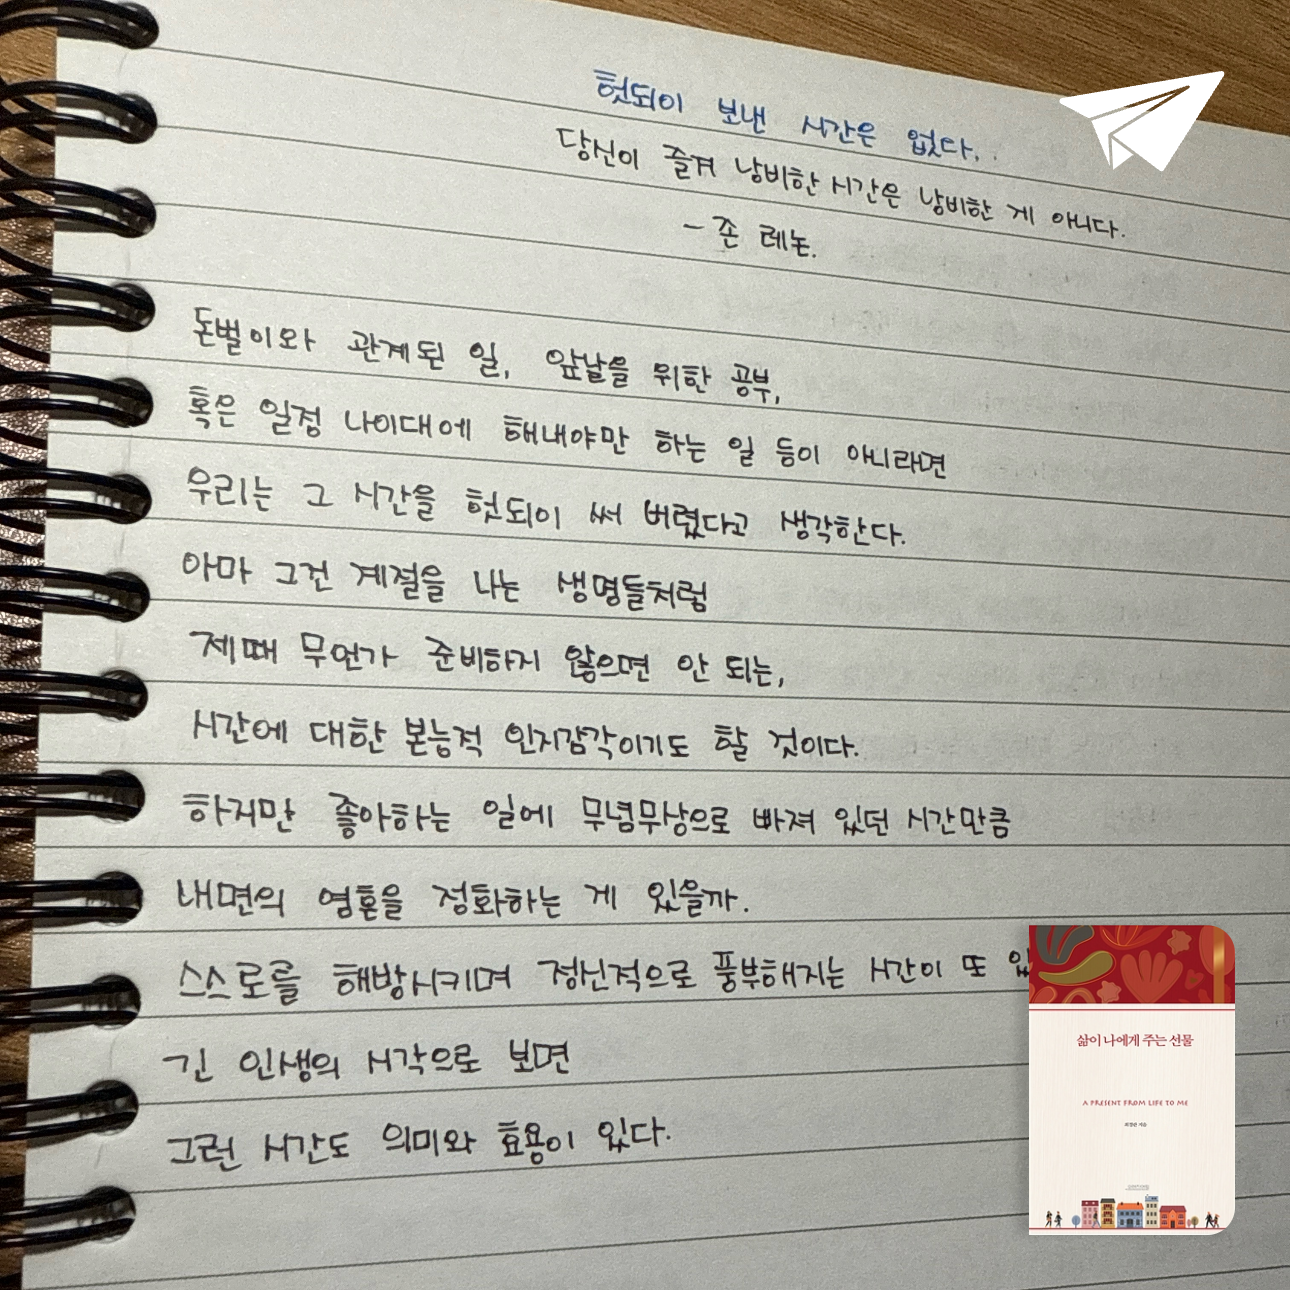 헛되이 보낸 시간은 없다.
당신이 즐겨 낭비한 시간은 낭비한 게 아니다.
- 존 레논.
돈벌이와 관계된 일, 앞날을 위한 공부,
혹은 일정 나이대에 해내야만 하는 일 등이 아니라면
우리는 그 시간을 헛되이 써 버렸다고 생각한다.
아마 그건 계절을 나는 생명들처럼
제때 무언가 준비하지 않으면 안 되는,
시간에 대한 본능적 인지감각이기도 할 것이다.
하지만 좋아하는 일에 무념무상으로 빠져 있던 시간만큼
내면의 영혼을 정화하는 게 있을까.
스스로를 해방시키며 정신적으로 풍부해지는 시간이 또
긴 인생의 시각으로 보면
그런 시간도 의미와 효용이 있다.
삶이 나에게 주는 선물
A PRESENT FROM LIFE TO ME
지음